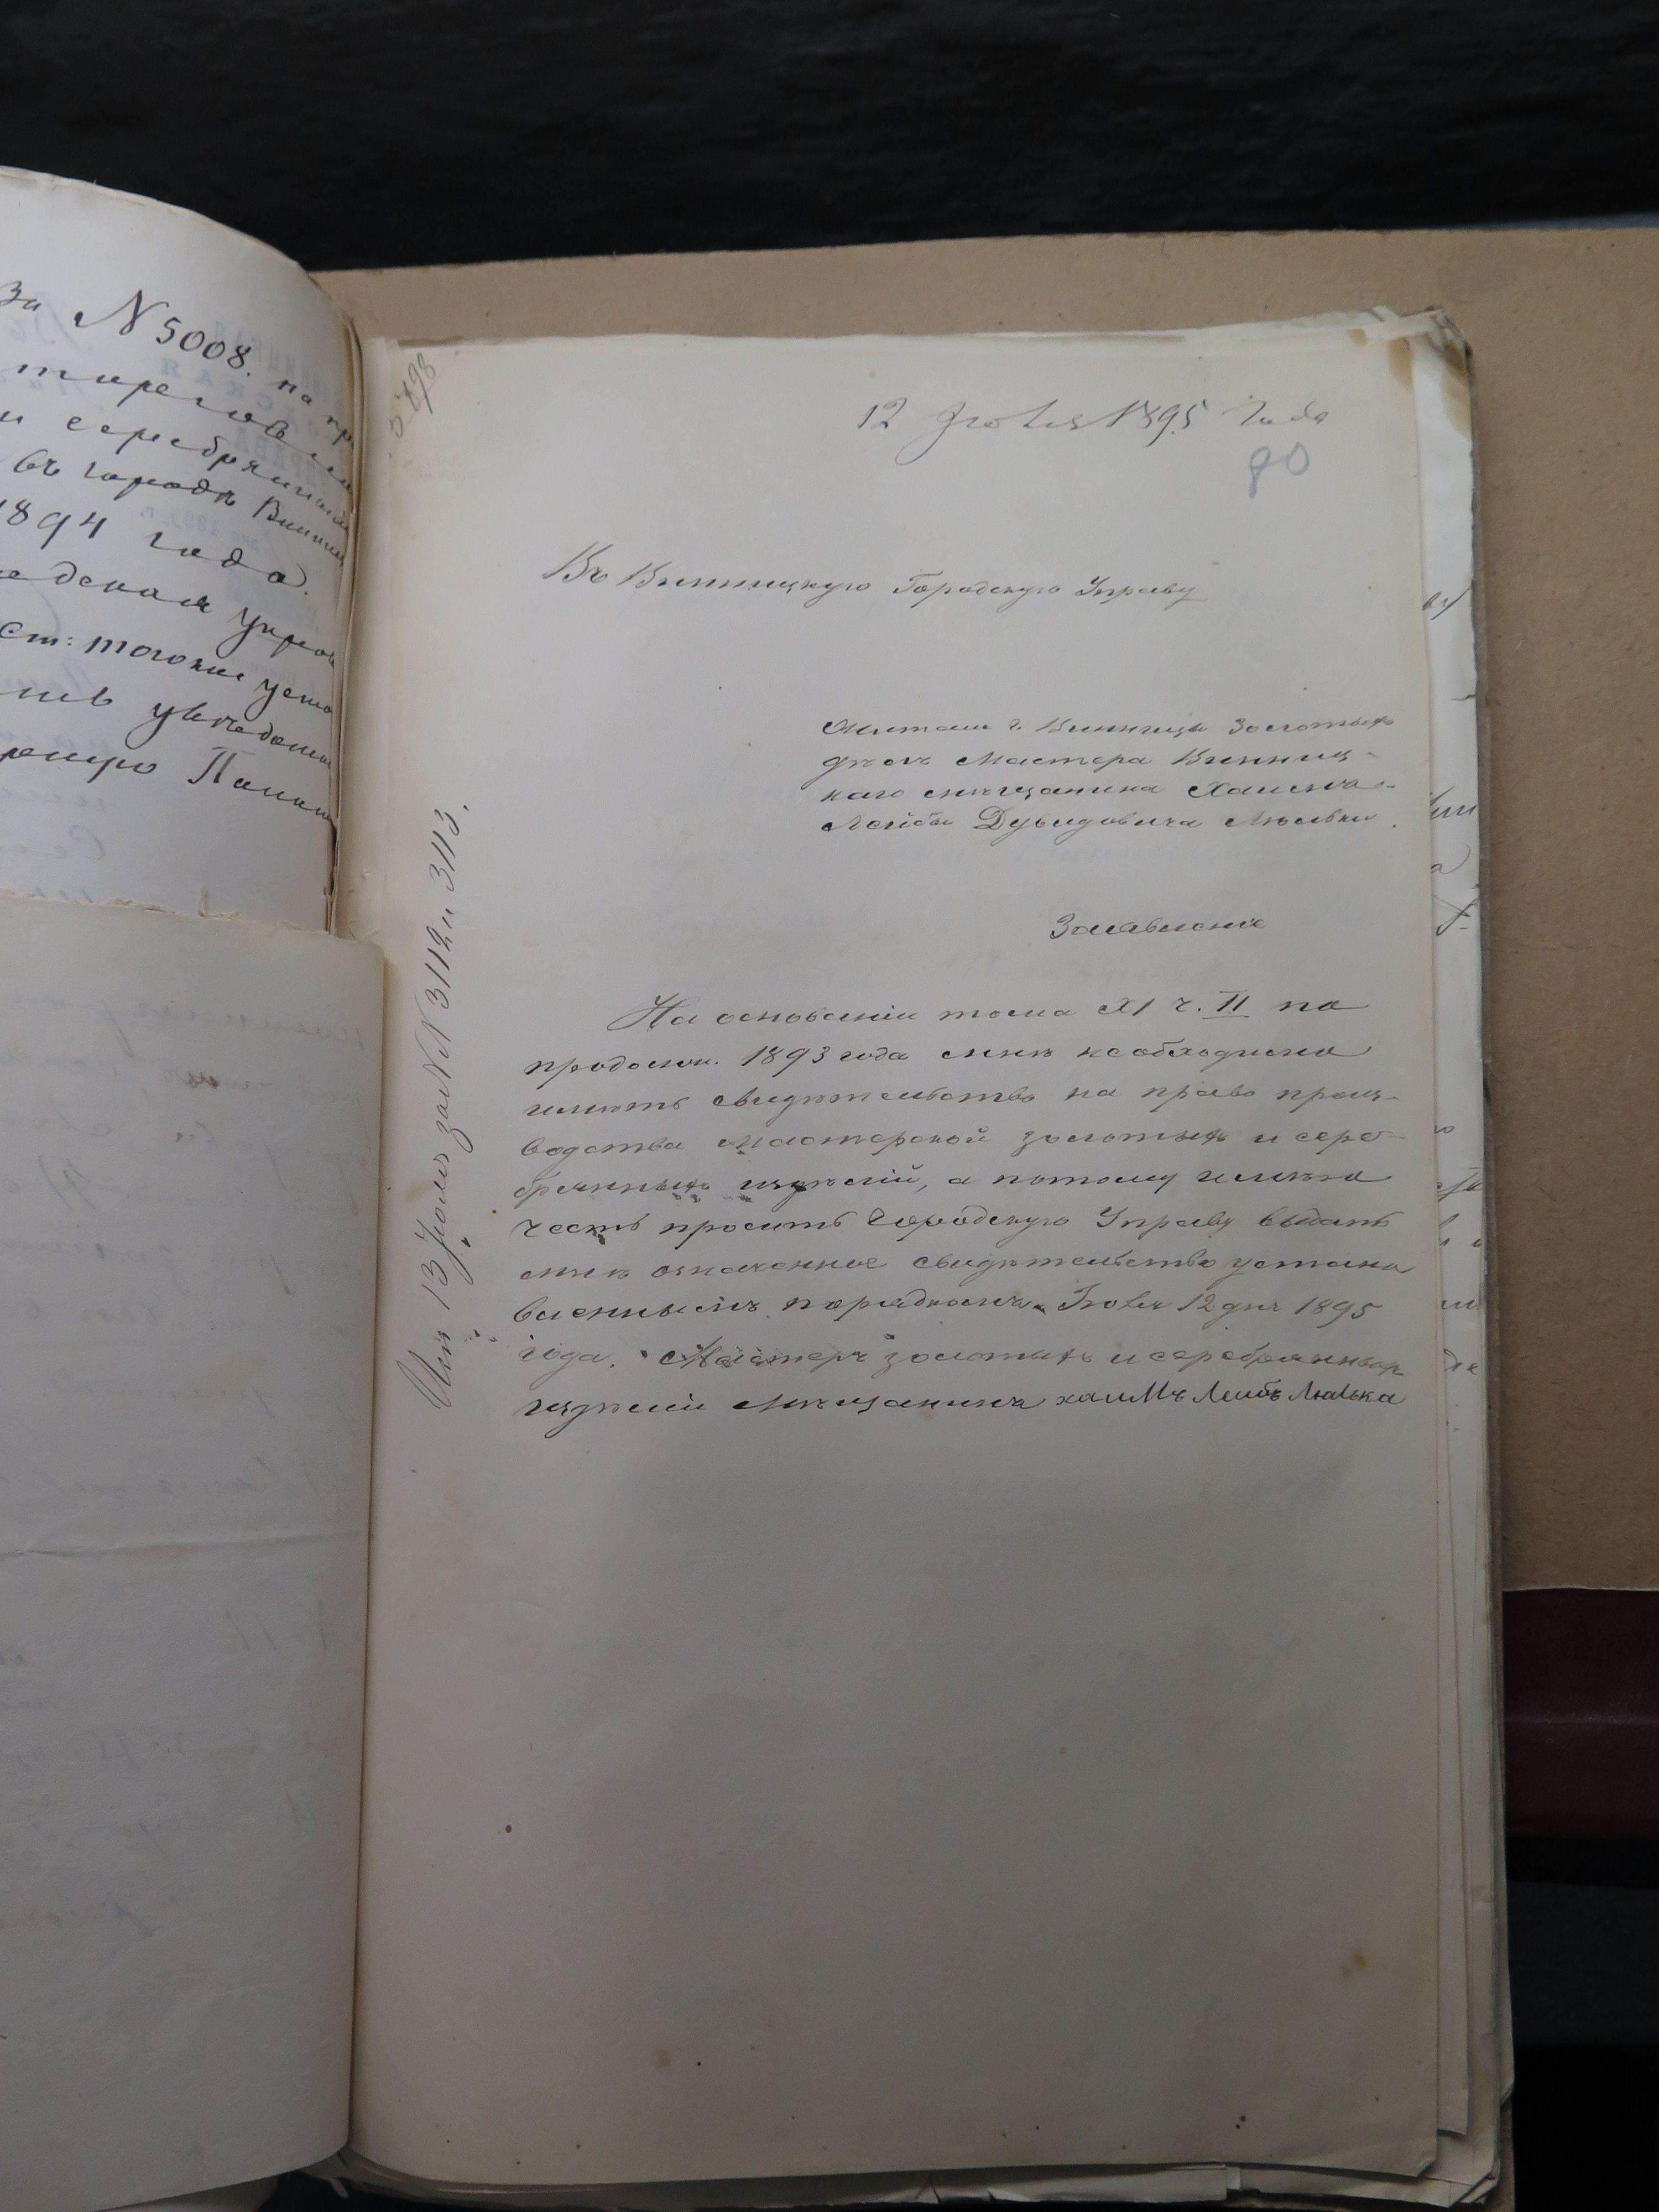 за N 5008. на пр
и серебрянны
въ городѣ Винни
1894 года.
ст: тогоже уста
увѣдоми
5898
12 Іюля 1895 года
80
Въ Винницкую Городскую Управу
г. Винницы Золотыхъ
дѣлъ Мастера Винниц-
каго мѣщанина Хаима-
Лейбы Дувидовича Люльки.
Заявленіе
На основаніи тома XI ч. II по
продолж. 1893 года мнѣ необходимо
имѣть свидѣтельство на право произ-
водства мастерской золотыхъ и сере-
брянныхъ издѣлій, а потому имѣю
честь просить Городскую Управу выдать
мнѣ означенное свидѣтельство установ
леннымъ порядкомъ. Іюля 12 дня 1895
года. Мастеръ золотыхъ и серебрянныхъ
издѣлій Мѣщанинъ хаимъ Лейбъ Люлька
Исп. 13 Іюля за NN 3112 и 3113.